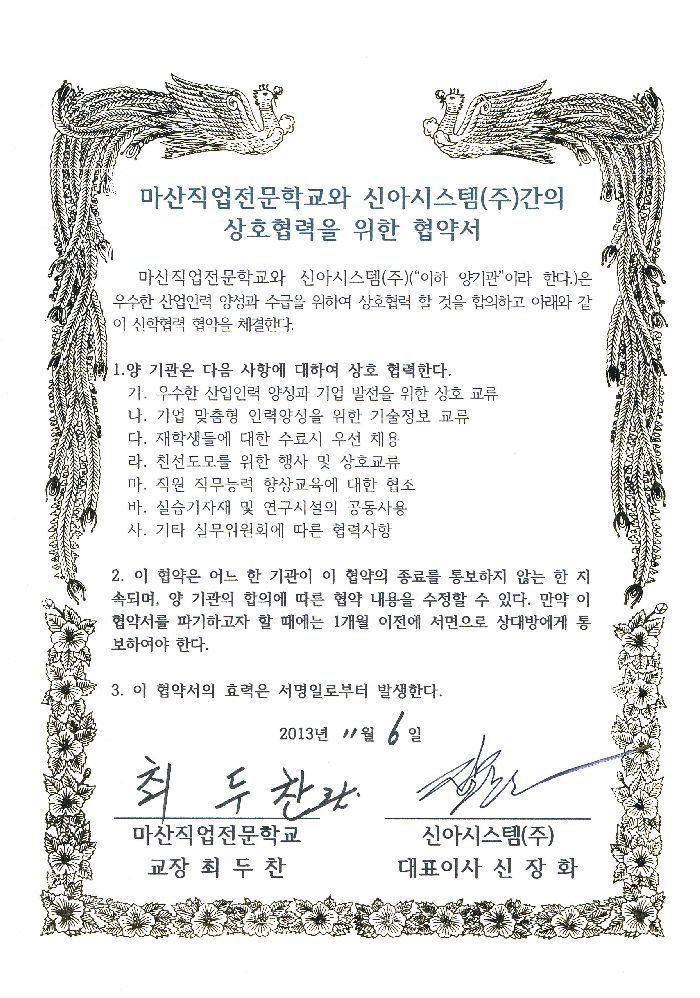 마산직업전문학교와 신아시스템(주)간의
상호협력을 위한 협약서
마산직업전문학교와 신아시스템(주)(“이하 양기관”이라 한다.)은
우수한 산업인력 양성과 수급을 위하여 상호협력 할 것을 합의하고 아래와 같
이 산학협력 협약을 체결한다.
1.양 기관은 다음 사항에 대하여 상호 협력한다.
가. 우수한 산업인력 양성과 기업 발전을 위한 상호 교류
나. 기업 맞춤형 인력양성을 위한 기술정보 교류
다. 재학생들에 대한 수료시 우선 채용
라. 친선도모를 위한 행사 및 상호교류
마. 직원 직무능력 향상교육에 대한 협조
바. 실습기자재 및 연구시설의 공동사용
사. 기타 실무위원회에 따른 협력사항
2. 이 협약은 어느 한 기관이 이 협약의 종료를 통보하지 않는 한 지
속되며, 양 기관의 합의에 따른 협약 내용을 수정할 수 있다. 만약 이
협약서를 파기하고자 할 때에는 1개월 이전에 서면으로 상대방에게 통
보하여야 한다.
3. 이 협약서의 효력은 서명일로부터 발생한다.
2013년 11월 6일
최 두 찬
마산직업전문학교 신아시스템(주)
교장 최 두 찬 대표이사 신 장 화